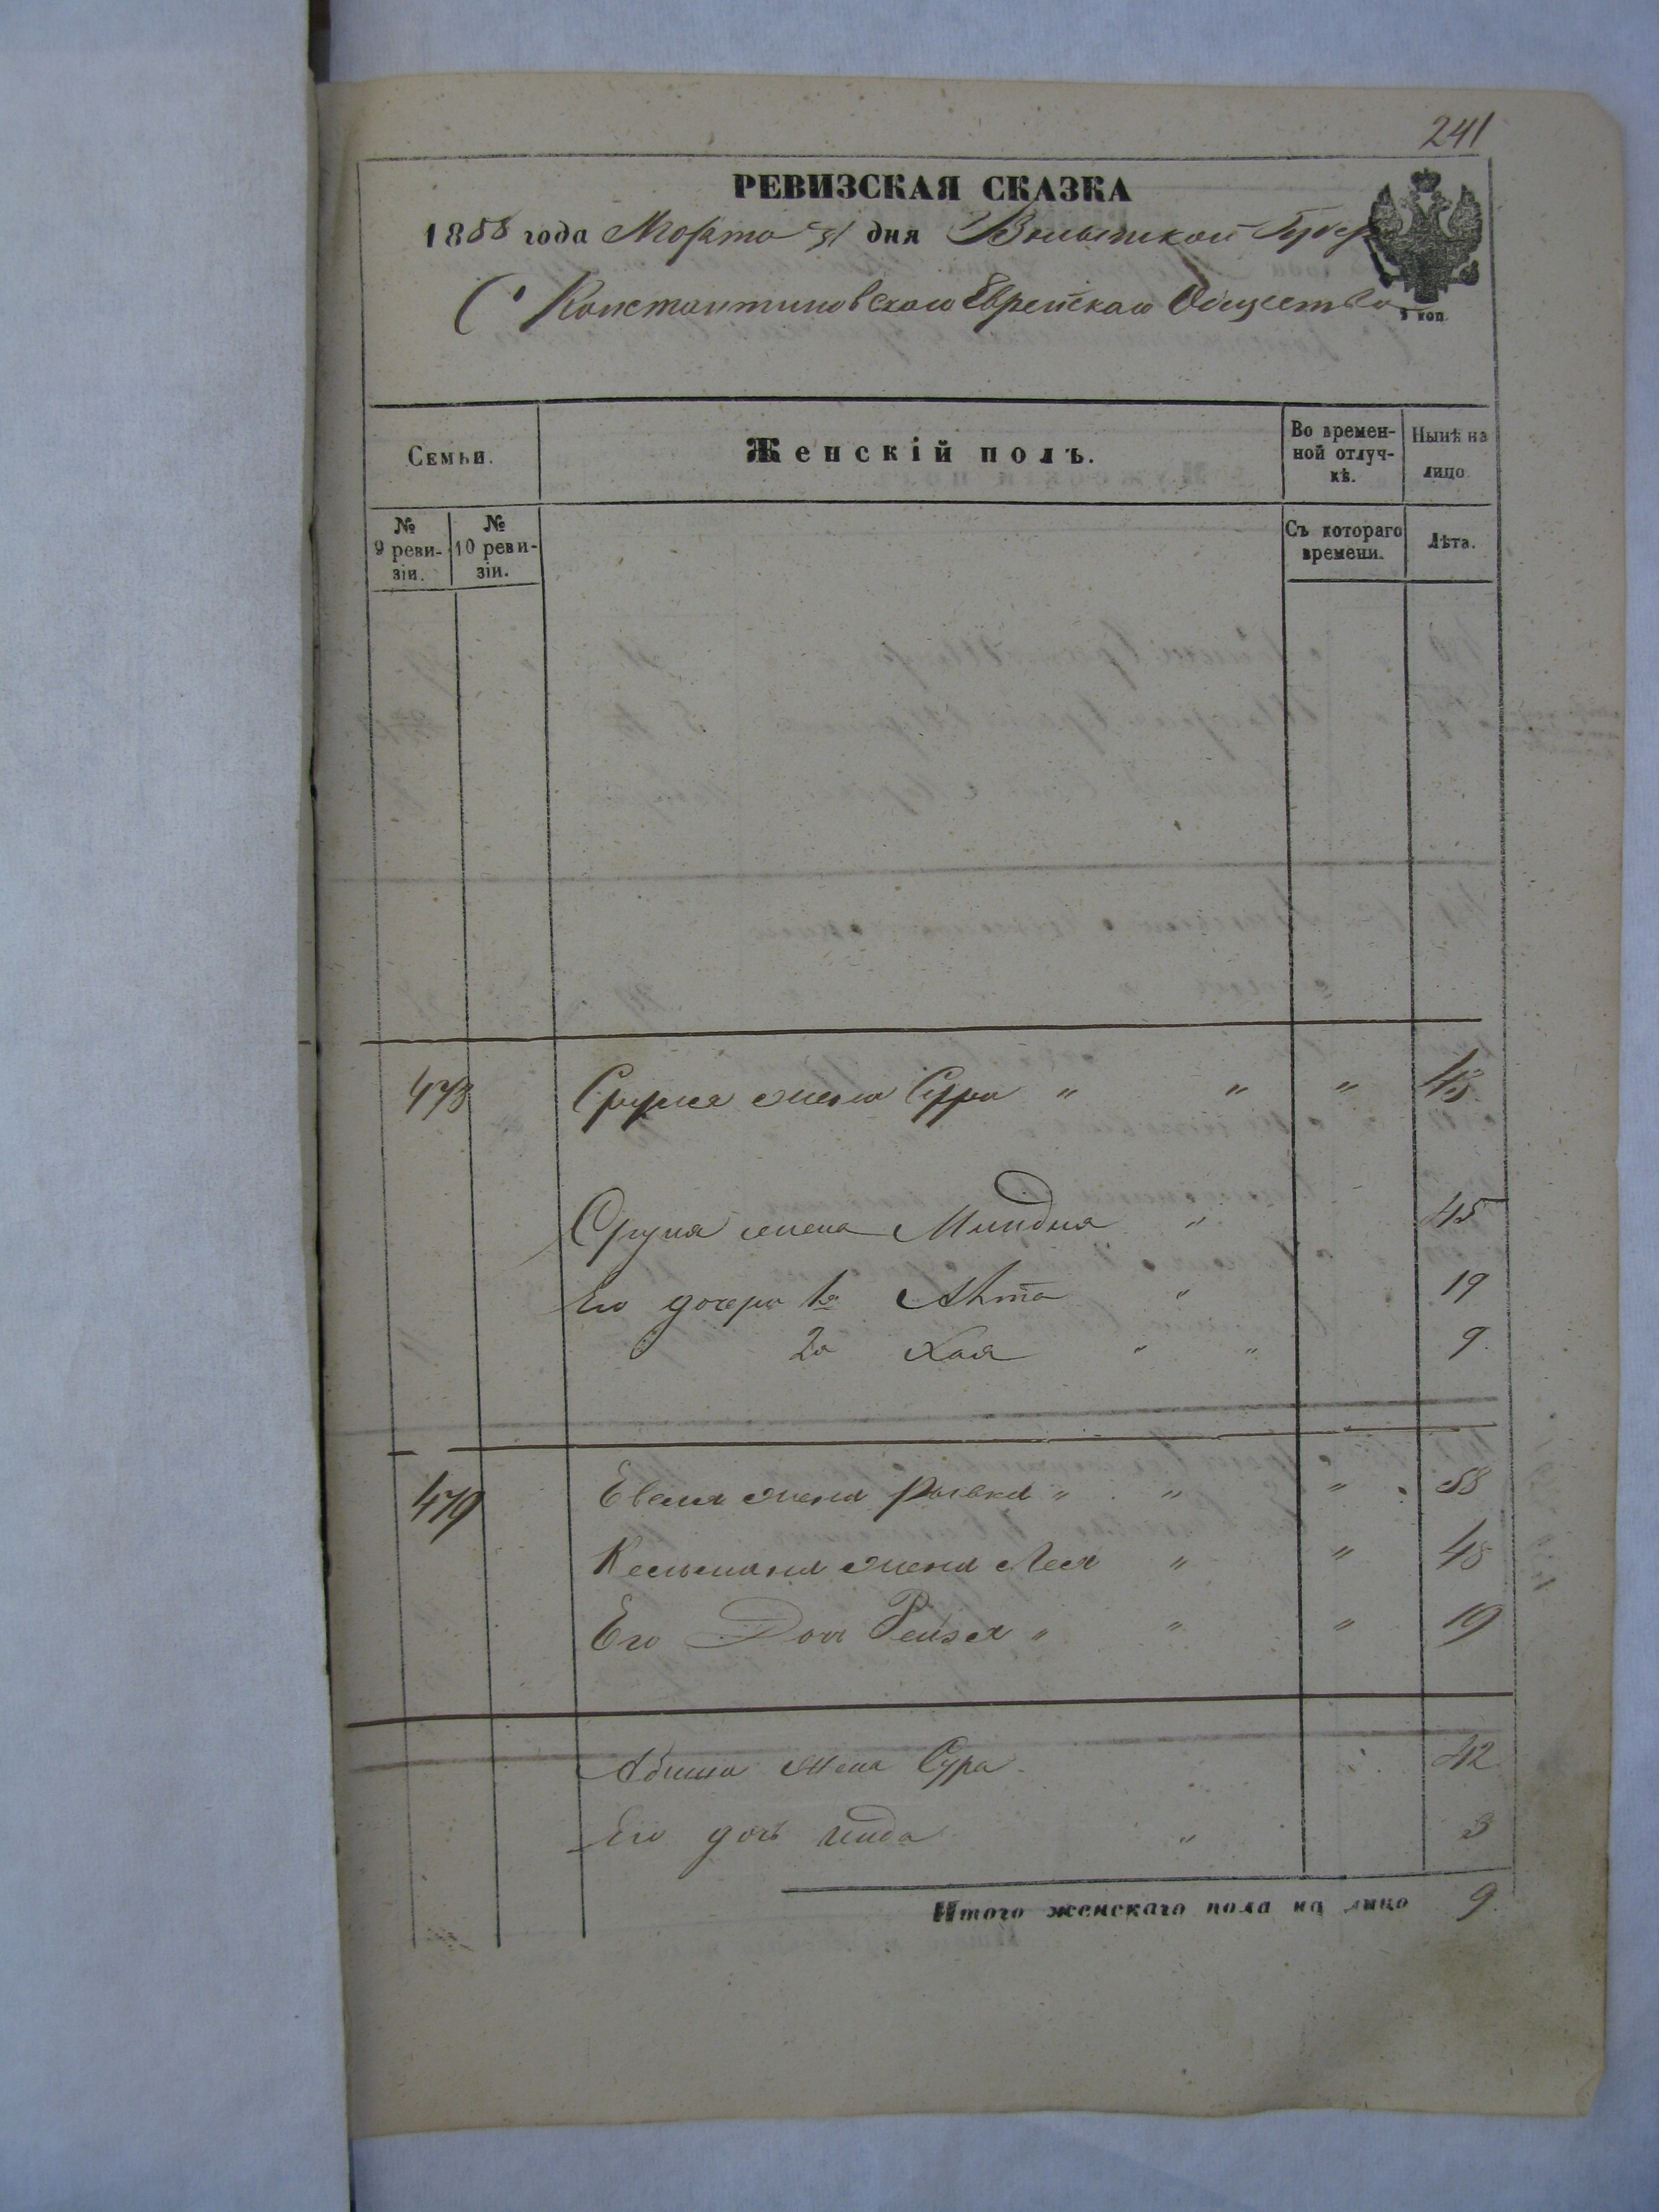 241
РЕВИЗСКАЯ СКАЗКА
1858 года Марта 31 дня Волынской Губер
С Константиновскаго Еврейскаго Общества
3 коп.
Семьи.
Женскій полъ.
Во времен-
ной отлуч-
кѣ.
Нынѣ на
лицо
№
9 реви-
зіи.
№
10 реви-
зіи.
Съ котораго
времени.
Лѣта.
478 Сруля жена Сура " " "
Сруля жена Миндля " 45
Его дочери 1я " 19
2я Хая " " 9
479 Евеля жена Ривка " " " 58
Кельмана жена Лея " " 48
Его Доч Рейзя " " " 19
жена Сура 42
Его дочь Хинда " 3
Итого женскаго пола на лицо 9